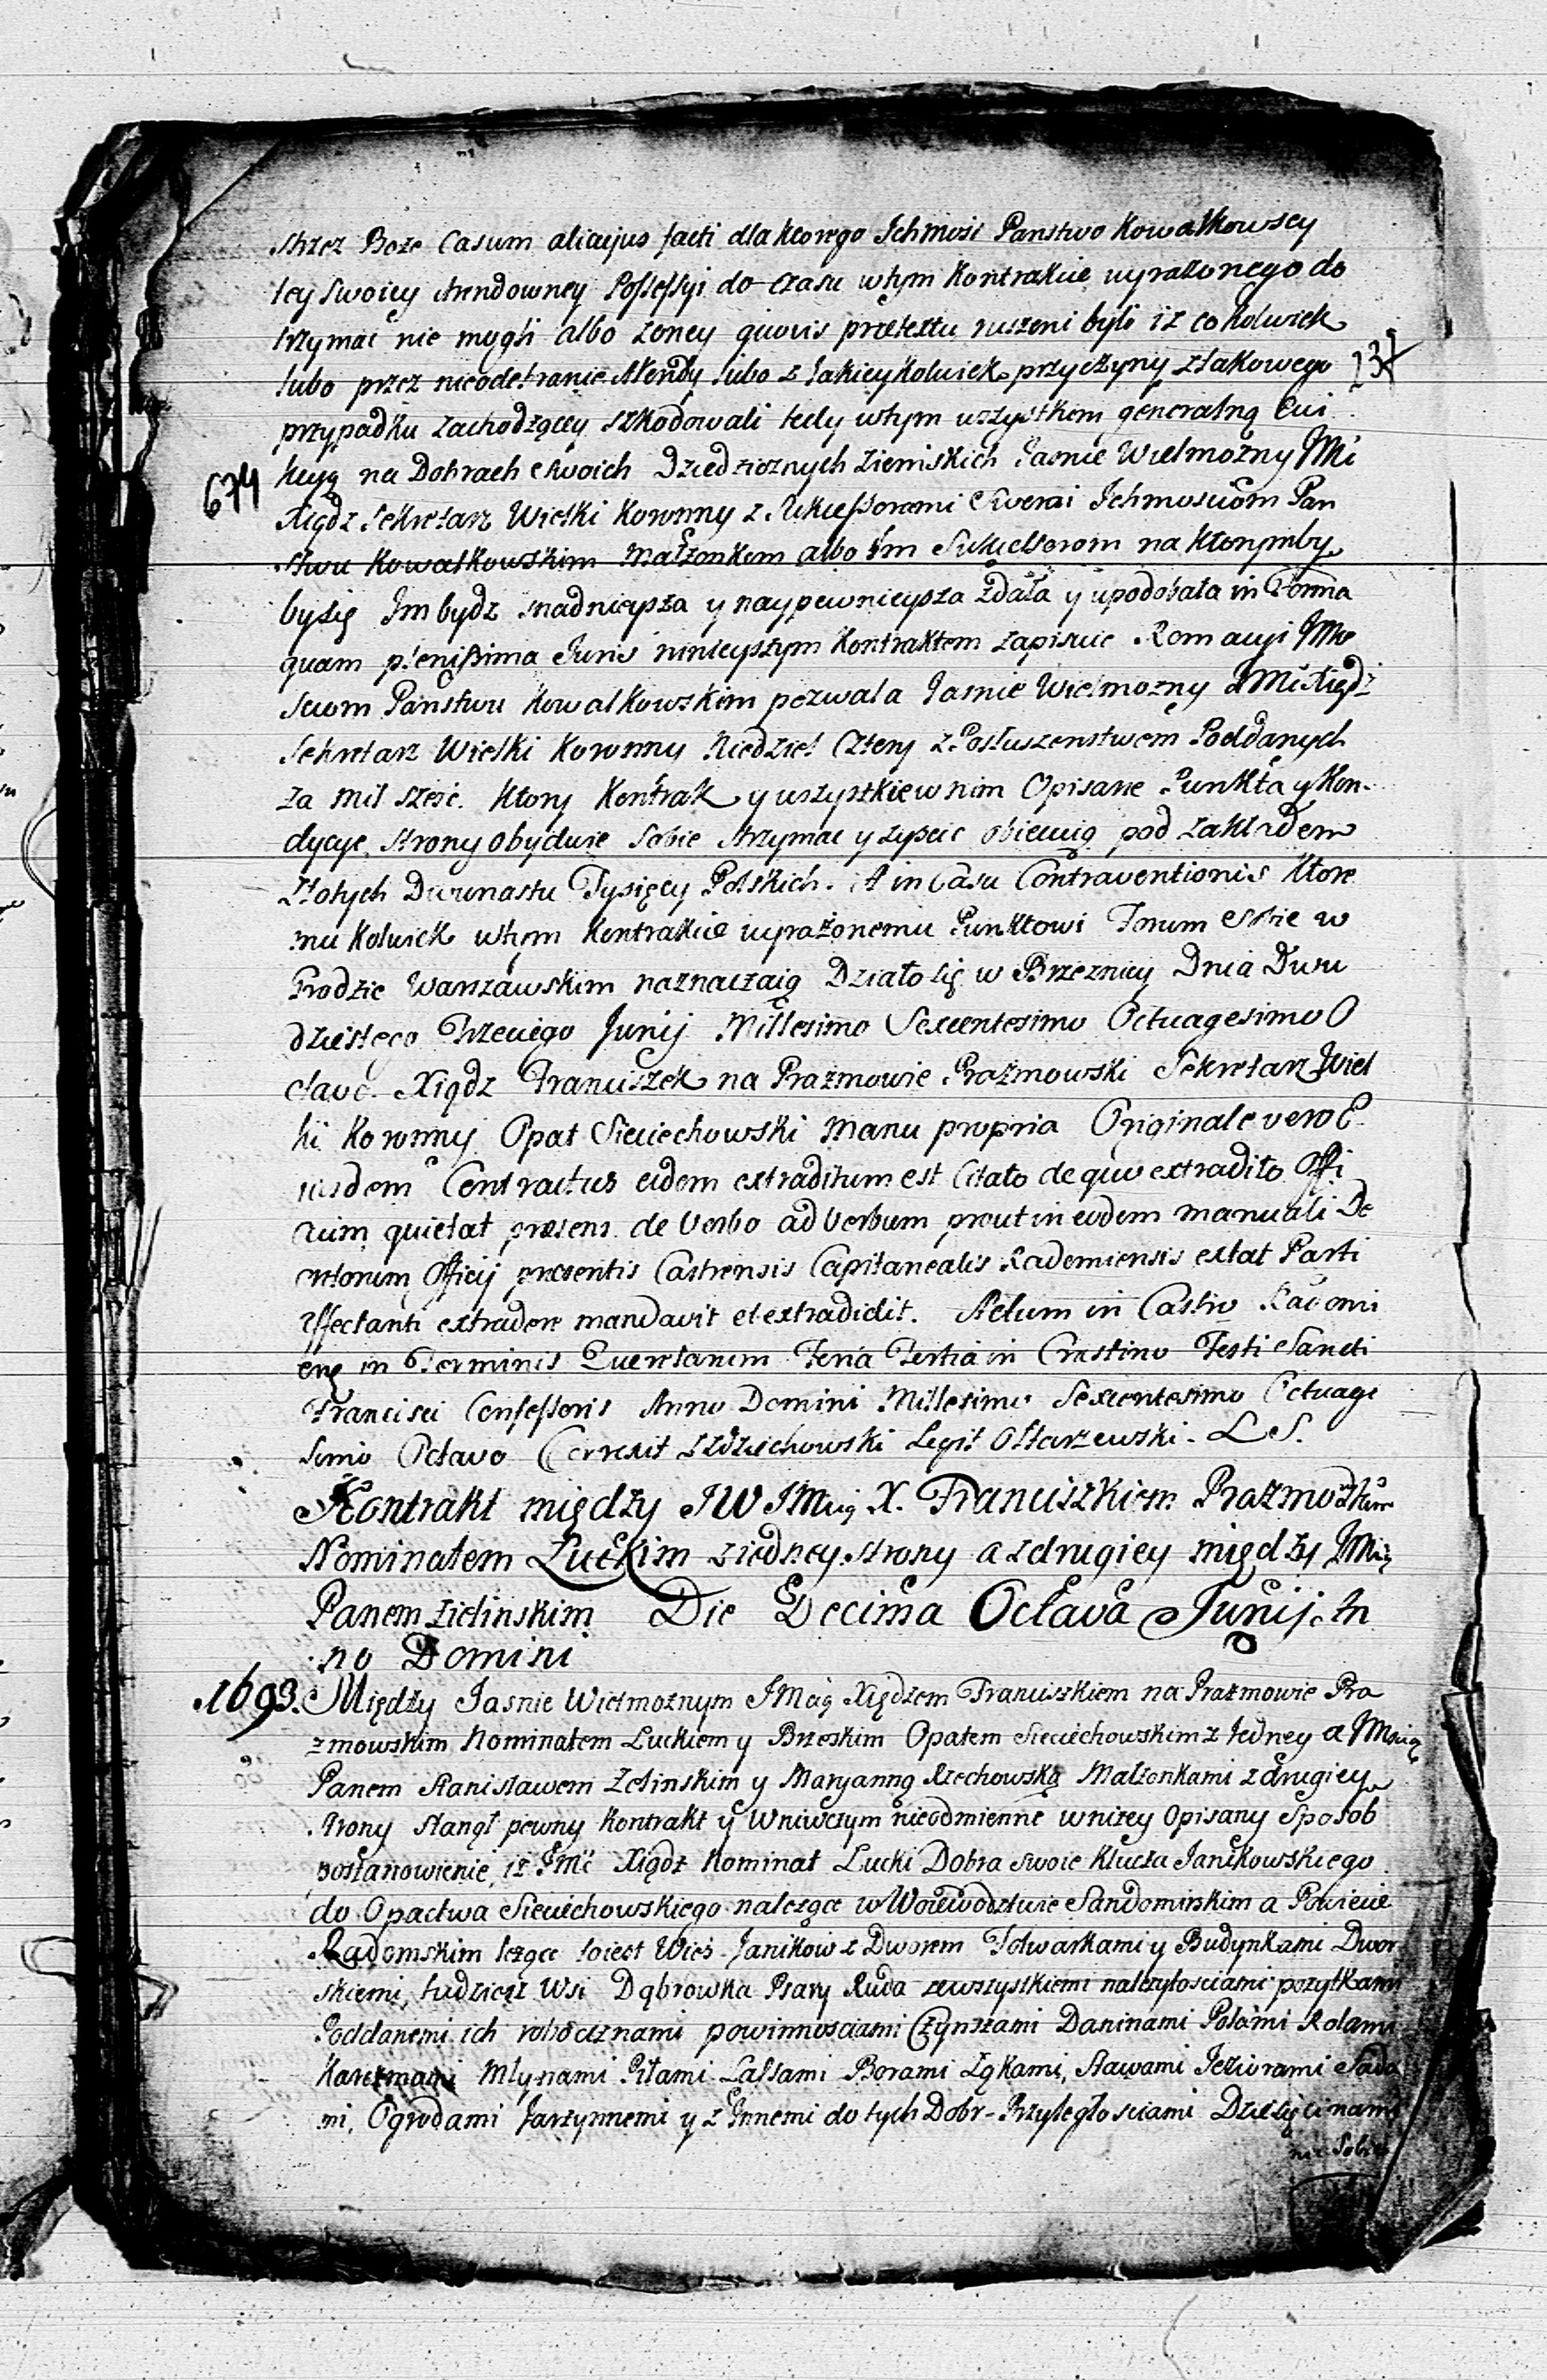 strzez Boze Casum alicujus facti dla ktorego Ichmosć Panstwo Kowalkowscy
tey swoiey Arendowney Possessyi do czasu wtym Kontrakcie wyrażonego do
trzymać nie mogli albo zoney quovis prætextu ruszeni byli iż cokolwiek
lubo przez nieodebranie Arendy lubo z Jakieykolwiek przyczyny z takowego
237
przypadku zachodzącey szkodowali tedy wtym wszystkim generalną Ewi
674
kcyą na Dobrach swoich Dziedzicznych ziemskich Jasnie Wielmożny JMć
Xiądz Sekretarz Wielki Koronny z Sukcessorami Swemi Ichmosciom Pan
stwu Kowalkowskim Małżonkom albo Im Sukcessorom na ktorymby
by się Im bydz snadnieysza y naypewnieysza zdała y upodobała in Forma
quam plenissima Juris ninieyszym Kontraktem zapisuie. Rom acyi JMo
sciom Panstwu Kowalkowskim pozwala Jasnie Wielmożny JMć Xiądz
Sekretarz Wielki Koronny Niedziel Cztery z Posłuszenstwem Poddanych
za mil sześć. Ktory Kontrakt y wszystkie w nim Opisane Punkta y Kon-
dycye, strony obydwie sobie strzymać y zyscić obiecuią pod zakładem
Złotych Dwunastu Tysięcy Polskich. A in Casu Contraventionis Ktore
mu kolwiek wtym Kontrakcie wyrażonemu Punktowi Forum Sobie w
Grodzie Warszawskim naznaczaią Działo się w Brzeznicy Dnia Dwu
dziestego Trzeciego Junij Millesimo Sexcentesimo Octuagesimo O
ctavo. Xiądz Franciszek na Prażmowie Prażmowski Sekretarz Wiel
ki Koronny Opat Sieciechowski Manu propria Originale vero E-
iusdem Contractus eidem extraditum est Citato de quo extradito Offi
cium quietat præsens de Verbo ad Verbum prout in eodem manuali De
cretorum Officij præsentis Castrensis Capitanealis Radomiensis extat Parti
affectanti extradere mandavit et extradidit. Actum in Castro Radomi
ensi in Terminis Querelarum Feria Tertia in Crastino Festi Sancti
Francisci Confessoris Anno Domini Millesimo Sexcentesimo Octuage
simo Octavo Correxit Zdziechowski Legit Ołtarzewski. L S.
Kontrakt między JW JMcią X. Franciszkiem Prażmowskim
Nominatem Łuckim z iedney strony a z drugiey między JMcią
Panem Zielinskim Die Decima Octava Junij An
no Domini
1693. Między Jasnie Wielmożnym JMcią Xiędzem Franciszkiem na Prażmowie Pra
żmowskim Nominatem Luckiem y Brzeskim Opatem Sieciechowskim z Jedney a JMcią
Panem Stanisławem Zelinskim y Maryanną Rzechowską Małżonkami z drugiey
strony stanął pewny Kontrakt y Wniwczym nieodmienne w niżey Opisany Sposob
postanowienie, iż JMć Xiądz Nominat Lucki Dobra swoie Klucza Janikowskiego
do Opactwa Sieciechowskiego należące w Woiewodztwie Sandomirskim a Powiecie
Radomskim leżące to iest Wieś Janikow z Dworem Folwarkami y Budynkami Dwor
skiemi, tudzież Wsi Dąbrowka Psary Ruda ze wszystkiemi należytosciami pożytkami
Poddanemi ich robociznami powinnosciami Czynszami Daninami Polami Rolami
Karczmami Młynami Piłami Lassami Borami Łąkami, Stawami Jeziorami Sada
mi, Ogrodami Jarzynnemi y z Innemi do tych Dobr-Przyległosciami Dziesięcinami
nic Sobie